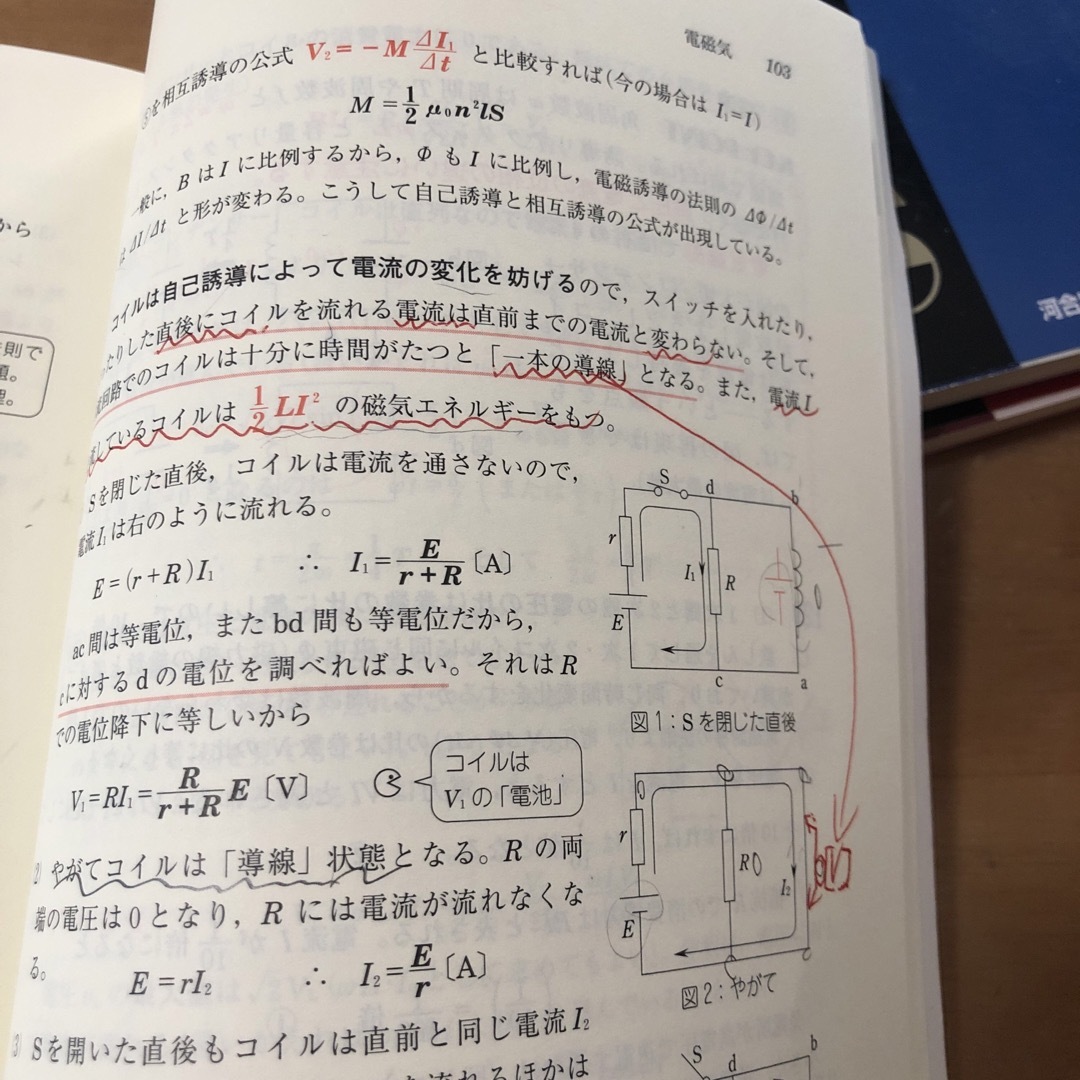 電磁気 103
⑤を相互誘導の公式 V₂=−M ΔI₁/Δt と比較すれば(今の場合は I₁=I)
M=1/2 μ₀n²lS
一般に, B は I に比例するから, Φ も I に比例し, 電磁誘導の法則の ΔΦ/Δt
は ΔI/Δt と形が変わる。こうして自己誘導と相互誘導の公式が出現している。
コイルは自己誘導によって電流の変化を妨げるので, スイッチを入れたり,
たりした直後にコイルを流れる電流は直前までの電流と変わらない。そして,
流回路でのコイルは十分に時間がたつと「一本の導線」となる。また, 電流 I
しているコイルは 1/2 LI² の磁気エネルギーをもつ。
Sを閉じた直後, コイルは電流を通さないので,
電流 I₁ は右のように流れる。
E=(r+R)I₁ ∴ I₁=E/(r+R)〔A〕
ac間は等電位, また bd 間も等電位だから,
cに対するdの電位を調べればよい。それは R
での電位降下に等しいから
V₁=RI₁=R/(r+R) E〔V〕
コイルは
V₁の「電池」
S d b
r I₁ R 0
E
c a
図1:Sを閉じた直後
(2) やがてコイルは「導線」状態となる。R の両
端の電圧は0となり, R には電流が流れなくな
る。
E=rI₂ ∴ I₂=E/r〔A〕
0
r R 0 I₂ 0V
E
図2:やがて
(3) Sを開いた直後もコイルは直前と同じ電流 I₂
を流れるほかは
S d b
から
法則で
題。
理。
河合